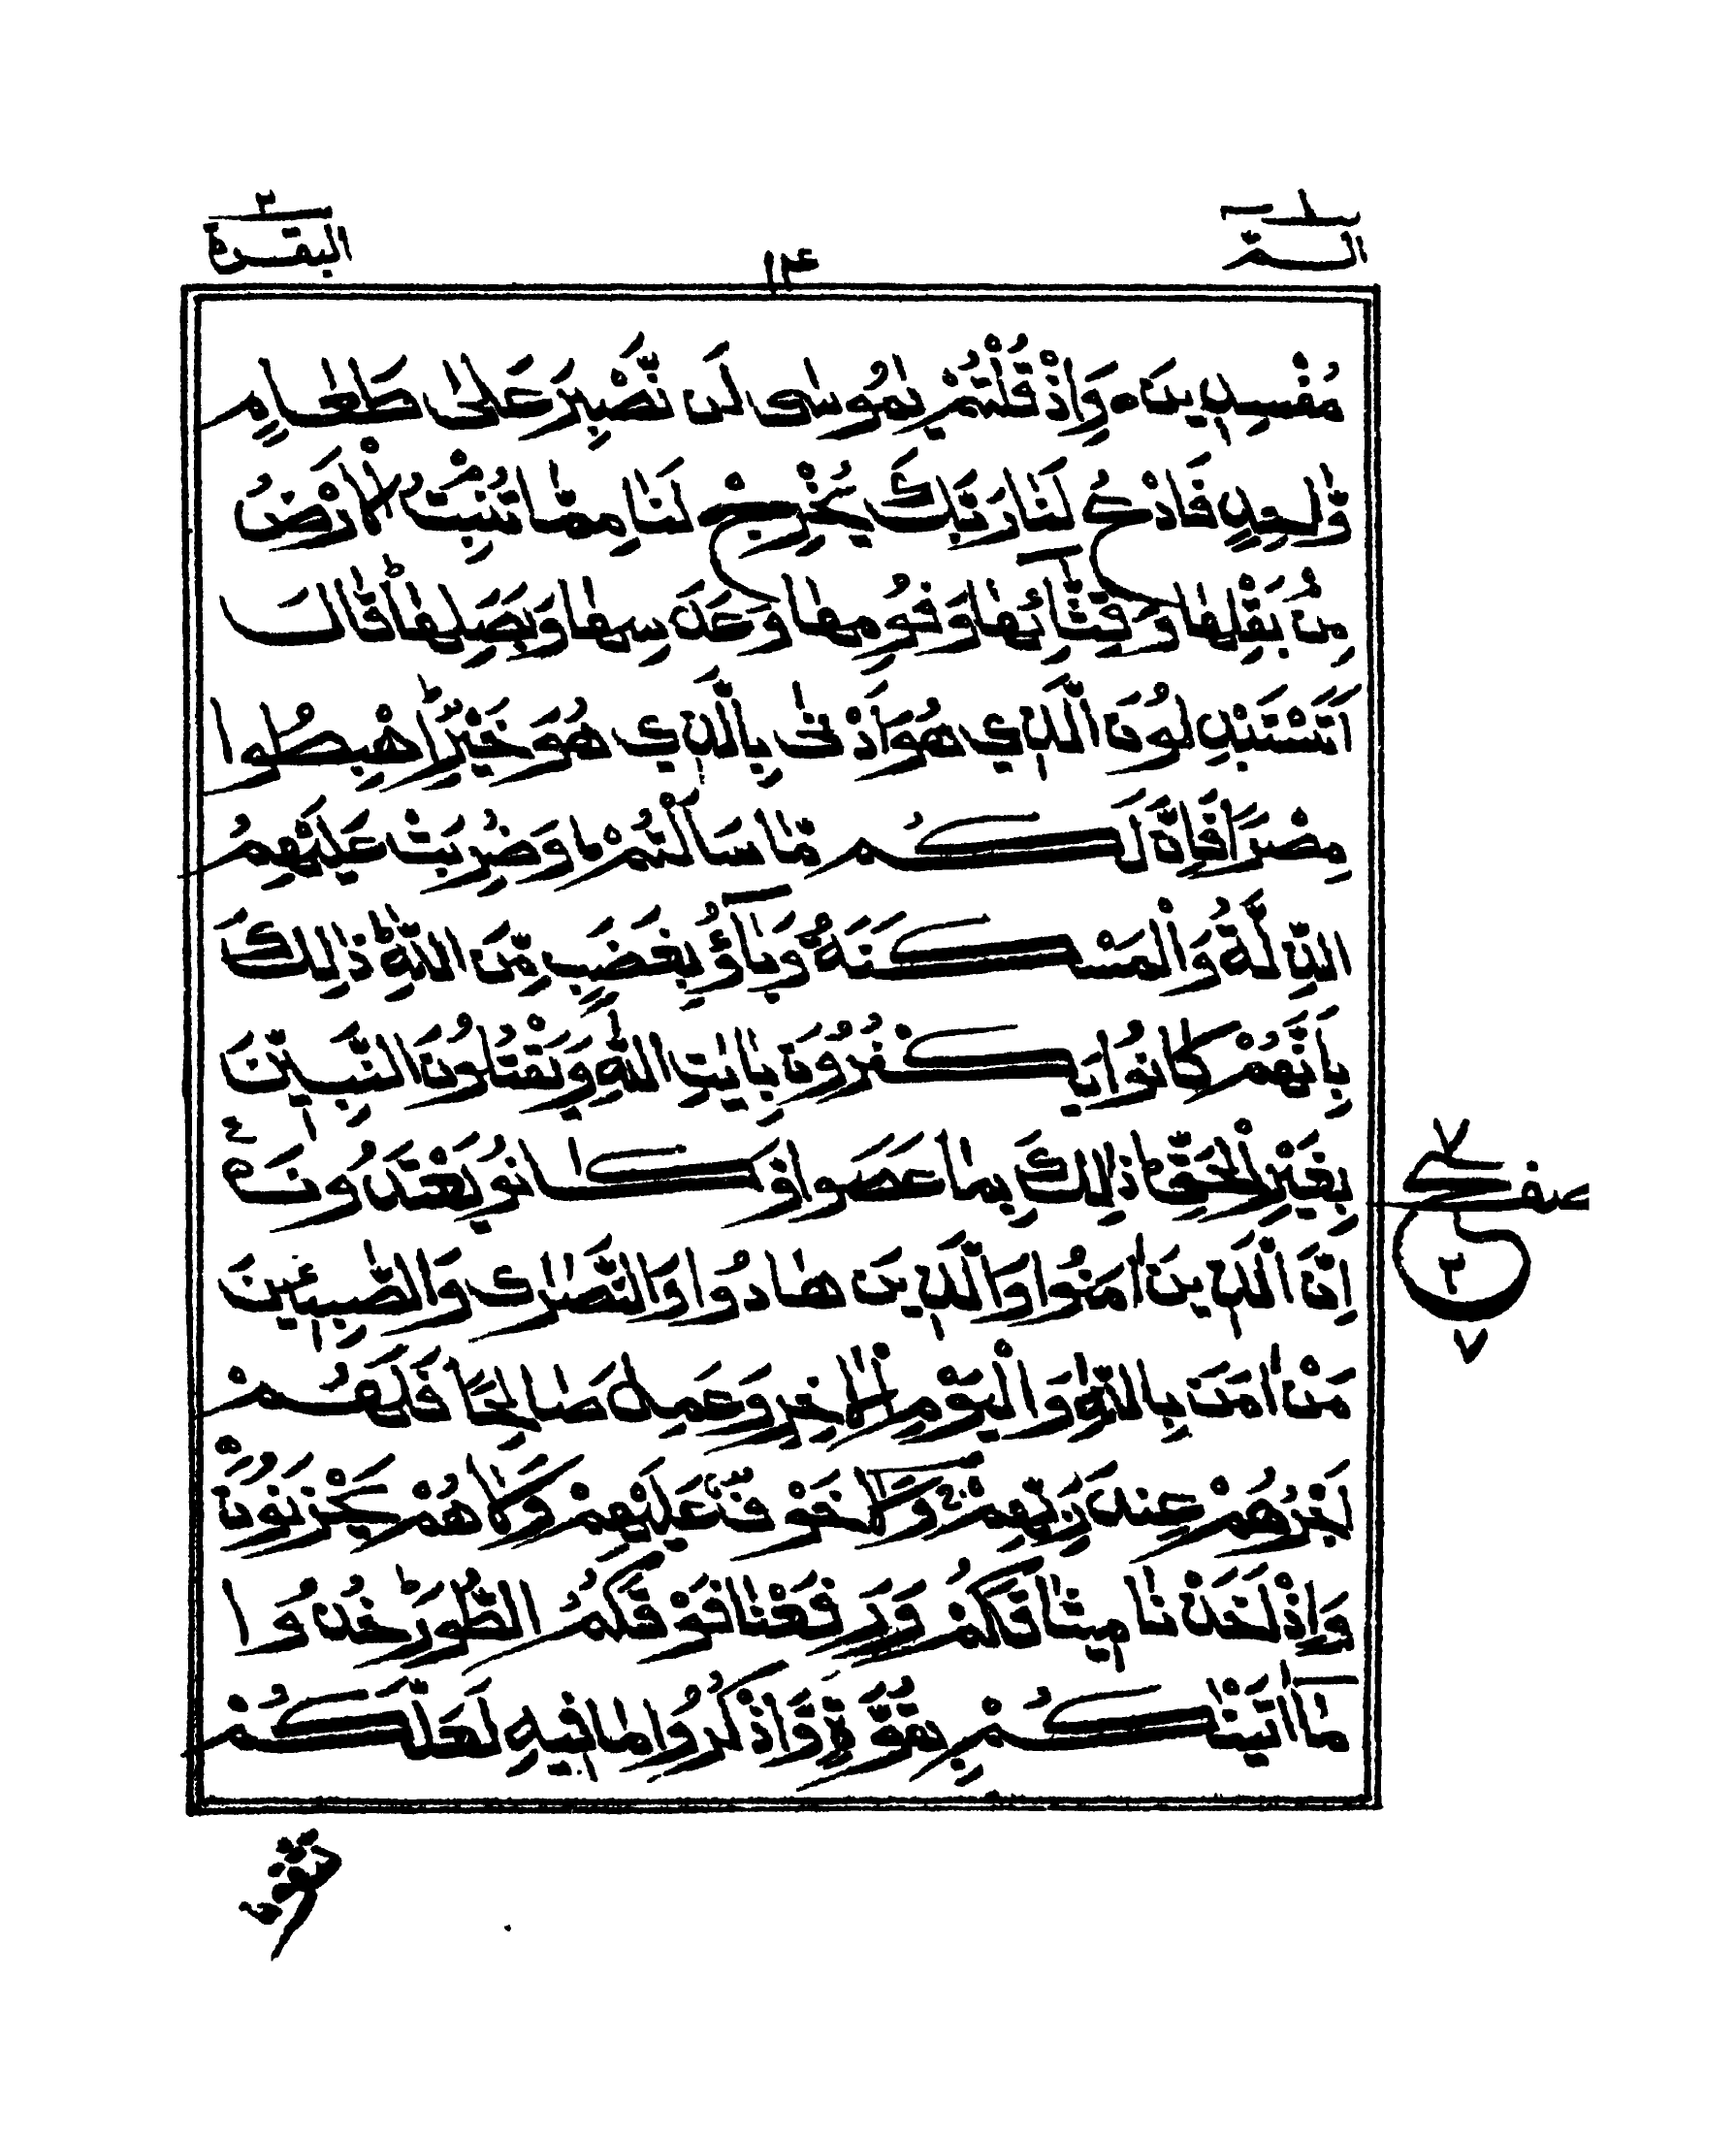 الٓمّٓ ١
١٤
البقرة ٢
مُفْسِدِيْنَ۝ وَاِذْ قُلْتُمْ يٰمُوْسٰى لَنْ نَّصْبِرَ عَلٰى طَعَامٍ
وَّاحِدٍ فَادْعُ لَنَا رَبَّكَ يُخْرِجْ لَنَا مِمَّا تُنْۢبِتُ الْاَرْضُ
مِنْۢ بَقْلِهَا وَقِثَّآئِهَا وَفُوْمِهَا وَعَدَسِهَا وَبَصَلِهَاؕ قَالَ
اَتَسْتَبْدِلُوْنَ الَّذِيْ هُوَ اَدْنٰى بِالَّذِيْ هُوَ خَيْرٌؕ اِهْبِطُوْا
مِصْرًا فَاِنَّ لَكُمْ مَّا سَاَلْتُمْؕ وَضُرِبَتْ عَلَيْهِمُ
الذِّلَّةُ وَالْمَسْكَنَةُ وَبَآؤُ بِغَضَبٍ مِّنَ اللّٰهِؕ ذٰلِكَ
بِاَنَّهُمْ كَانُوْا يَكْفُرُوْنَ بِاٰيٰتِ اللّٰهِ وَيَقْتُلُوْنَ النَّبِيّٖنَ
بِغَيْرِ الْحَقِّؕ ذٰلِكَ بِمَا عَصَوْا وَّكَانُوْا يَعْتَدُوْنَ۝ ع
اِنَّ الَّذِيْنَ اٰمَنُوْا وَالَّذِيْنَ هَادُوْا وَالنَّصٰرٰى وَالصّٰبِـِٕيْنَ
مَنْ اٰمَنَ بِاللّٰهِ وَالْيَوْمِ الْاٰخِرِ وَعَمِلَ صَالِحًا فَلَهُمْ
اَجْرُهُمْ عِنْدَ رَبِّهِمْ وَلَا خَوْفٌ عَلَيْهِمْ وَلَا هُمْ يَحْزَنُوْنَ۝
وَاِذْ اَخَذْنَا مِيْثَاقَكُمْ وَرَفَعْنَا فَوْقَكُمُ الطُّوْرَؕ خُذُوْا
مَآ اٰتَيْنٰكُمْ بِقُوَّةٍ وَّاذْكُرُوْا مَا فِيْهِ لَعَلَّكُمْ
٧
ع
٧
تتقون